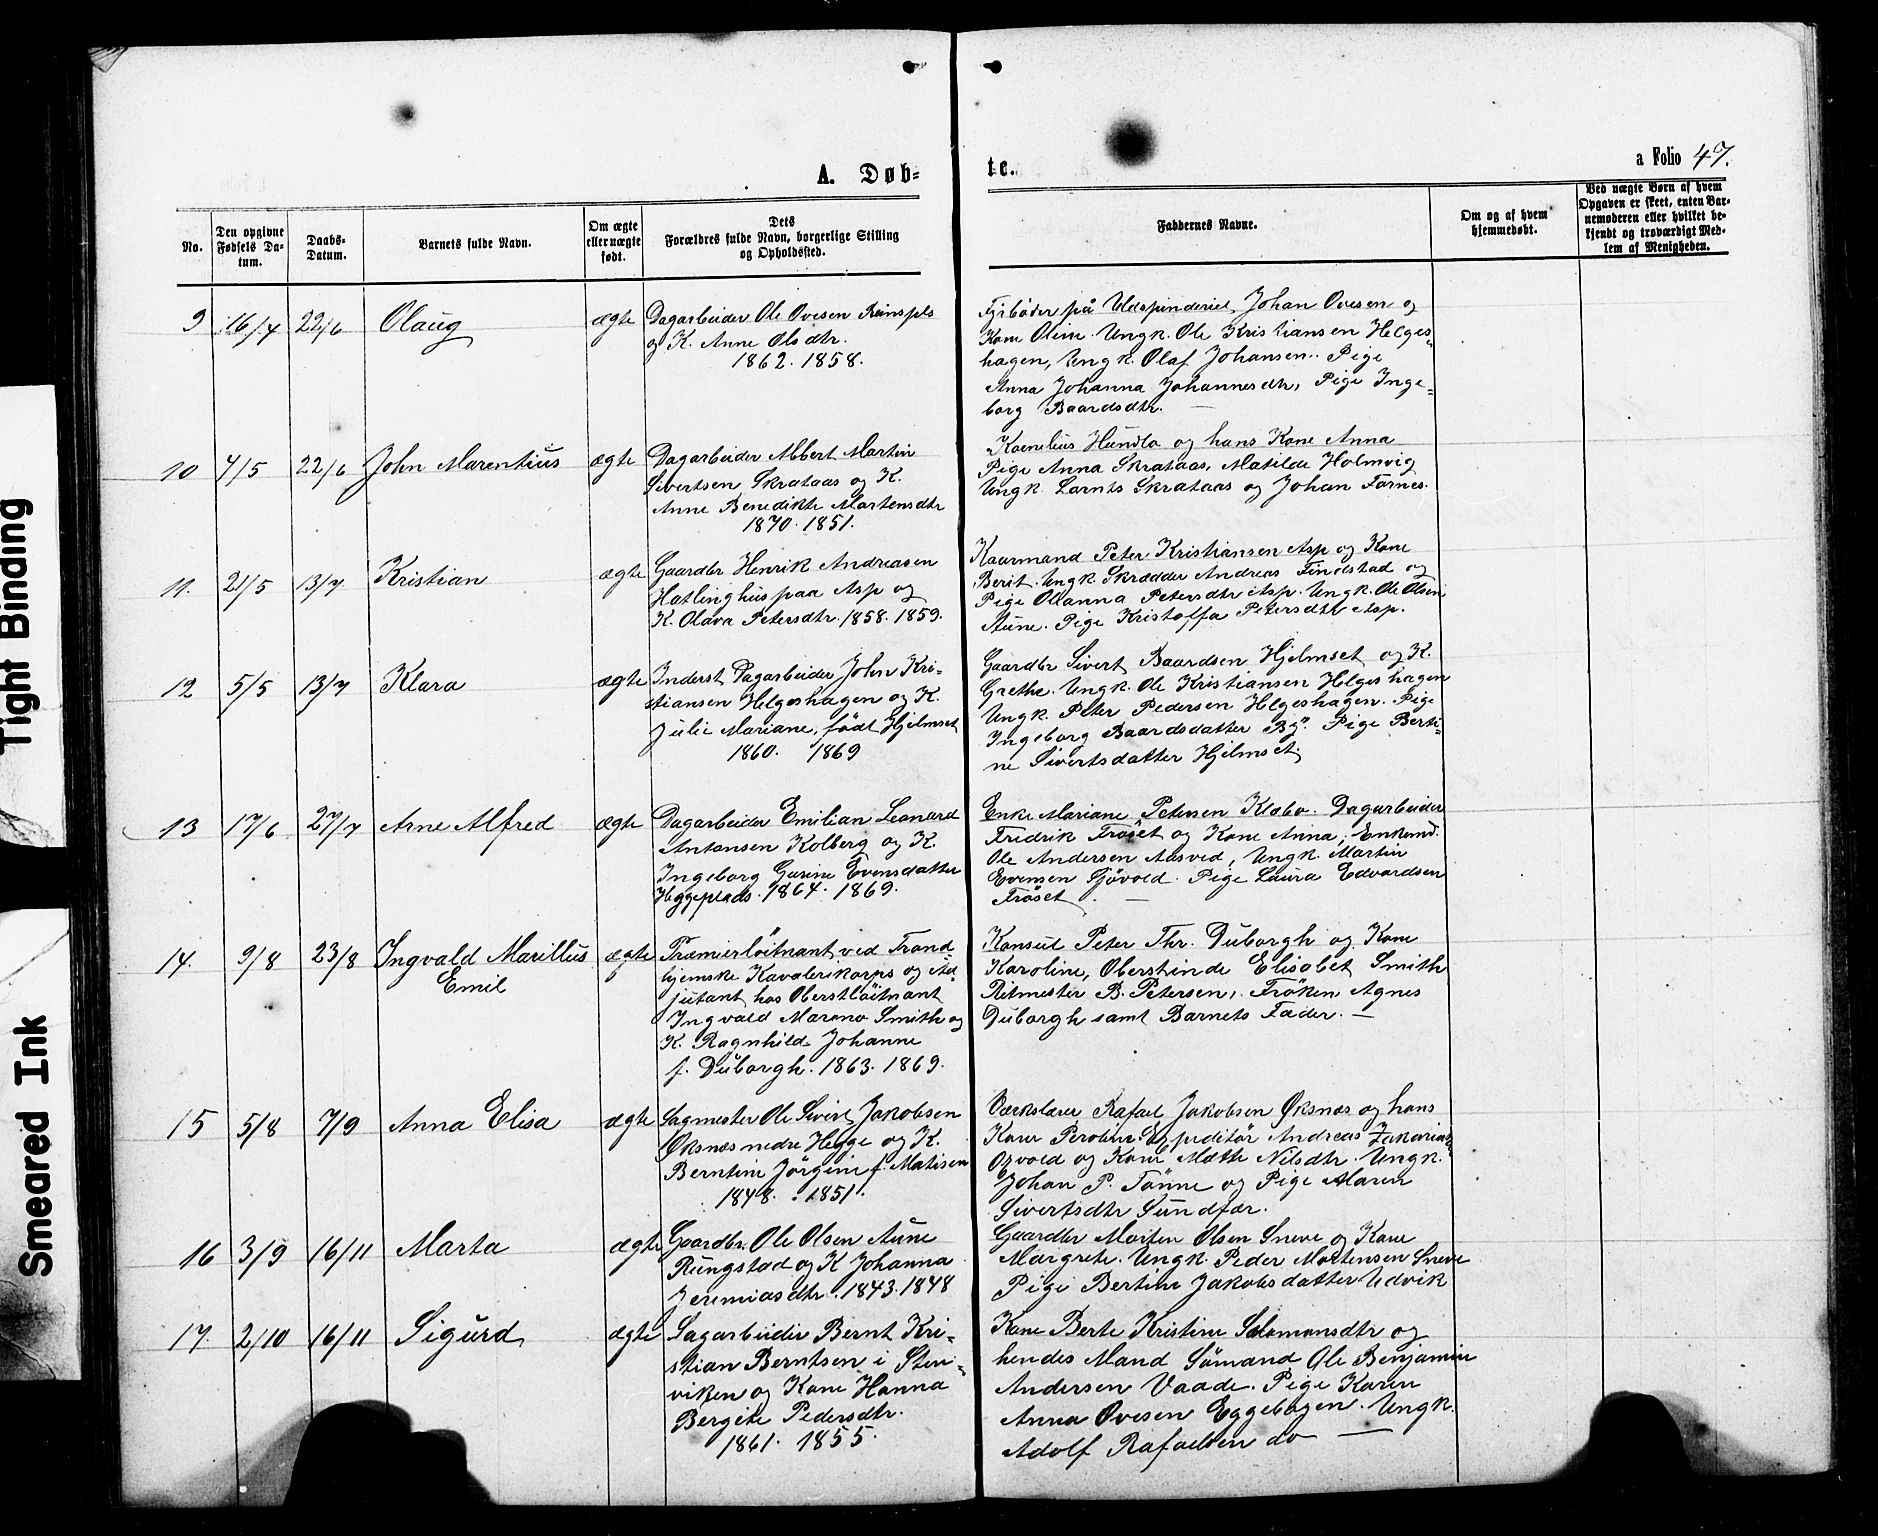 A. Døb-
te.
a Folio 47.
No.
Den opgivne Fødsels Datum.
Daabs-Datum.
Barnets fulde Navn.
Om ægte eller uægte født.
Dets Forældres fulde Navn, borgerlige Stilling og Opholdssted.
Faddernes Navne.
Om og af hvem hjemmedøbt.
Ved uægte Børn af hvem Opgaven er skeet, enten Barnemoderen eller hvilket bekjendt og troværdigt Medlem af Menigheden.
9 16/4 22/6 Olaug ægte
Dagarbeider Ole Ovesen Reinspls
og K. Anne Olsdtr.
1862. 1858.
Fyrbøder på Uldspinderiet Johan Ovesen og
Kone Oline. Ungk. Ole Kristiansen Helges-
hagen, Ungk. Olaf Johansen. Pige
Anna Johanna Johannesdtr, Pige Inge-
borg Baardsdtr. —
10 4/5 22/6 John Marentius ægte
Dagarbeider Albert Martin
Sivertsen Skrataas og K.
Anne Benedikte Martensdtr
1870. 1851.
Kornelius Hundlo og hans Kone Anna
Pige Anna Skrataas, Matilde Holmvig
Ungk. Lornts Skrataas og Johan Fornes.
11. 21/5 13/7 Kristian ægte
Gaardbr Henrik Andreasen
Hatlinghus paa Asp og
K. Olava Petersdtr. 1858. 1859.
Kaarmand Peter Kristiansen Asp og Kone
Berit. Ungk. Skrædder Andreas Findstad og
Pige Olianna Petersdtr Asp. Ungk. Ole Olsen
Aune. Pige Kristoffa Petersdtr Asp.
12 5/5 13/7 Klara ægte
Inderst Dagarbeider John Kri-
stiansen Helgeshagen og K.
Julie Mariane, født Hjelmset
1860. 1869
Gaardbr Sivert Baardsen Hjelmset og K.
Grethe. Ungk. Ole Kristiansen Helgeshagen
Ungk. Peter Pedersen Helgeshagen. Pige
Ingeborg Baardsdatter By. Pige Berti-
ne Sivertsdatter Hjelmset.
13 17/6 27/7 Arne Alfred ægte
Dagarbeider Emilian Leonard
Antonsen Kolberg og K.
Ingeborg Gurine Evensdatter
Heggeplads. 1864. 1869.
Enke Mariane Petersen Klæbo. Dagarbeider
Fredrik Frøset og Kone Anna, Enkemd.
Ole Andersen Aasved, Ungk. Martin
Evensen Sjövold. Pige Laura Edvardsen
Fröset. —
14. 9/8 23/8 Ingvald Marillus ægte
Emil
Præmierlöitnant ved Trond
hjemske Kavalerikorps og Ad-
jutant hos Oberstlöitnant
Ingvald Mareno Smith og
K. Ragnhild Johanne
f. Duborgh. 1863. 1869.
Konsul Peter Thr. Duborgh og Kone
Karoline, Oberstinde Elisabet Smith
Ritmester B. Petersen, Fröken Agnes
Duborgh samt Barnets Fader. —
15 5/8 7/9 Anna Elisa ægte
Sagmester Ole Sivert Jakobsen
Øksnæs nedre Hegge og K.
Berntine Jörgine f. Matisen
1848. 1851.
Værkslærer Rafael Jakobsen Øksnæs og hans
Kone Peroline. Expeditör Andreas Zakarias
Ogvold og Kone Mætte Nilsdtr. Ungk.
Johan P. Tönne og Pige Maren
Sivertsdtr Sundfær.
16 3/9 16/11 Marta ægte
Gaardbr. Ole Olsen Aune
Rungstad og K Johanna
Jeremiasdtr. 1843. 1848
Gaardbr Morten Olsen Sneve og Kone
Margrete. Ungk. Peder Mortensen Sneve
Pige Bertine Jakobsdatter Udvik
17. 2/10 16/11 Sigurd ægte
Sagarbeider Bernt Kri-
stian Berntsen i Sten-
viken og Kone Hanna
Bergite Pedersdtr.
1861. 1855.
Kone Berte Kristine Salomonsdtr og
hendes Mand Sömand Ole Benjamin
Andersen Vaade. Pige Karen
Anna Ovesen Eggebogen. Ungk.
Adolf Rafaelsen do —
Tight Binding
Smeared Ink